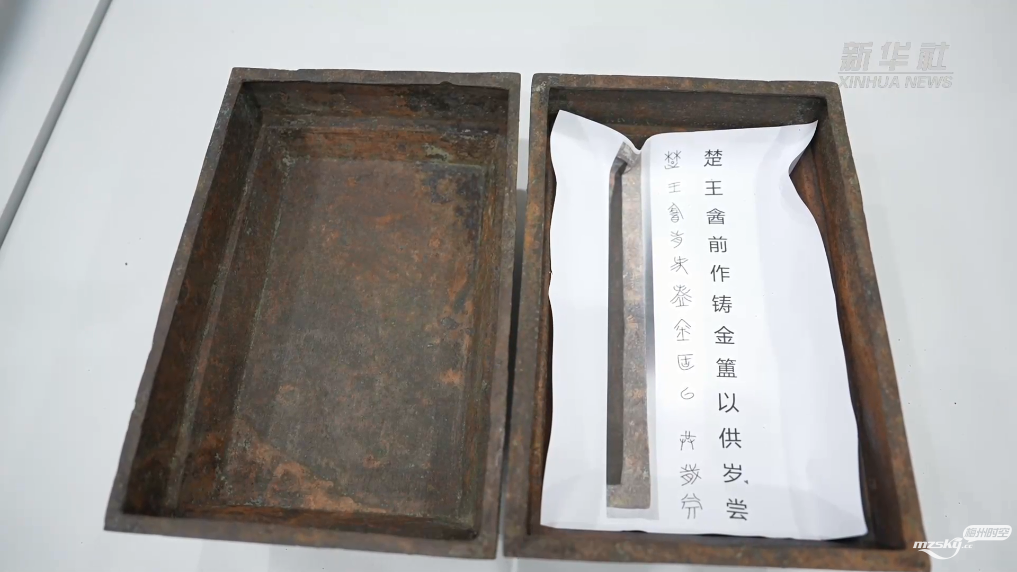 新华社
XINHUA NEWS
楚王酓前作铸金簠以供岁、尝
楚王酓前作铸金簠以供岁尝
梅州时空
mzsky.cc